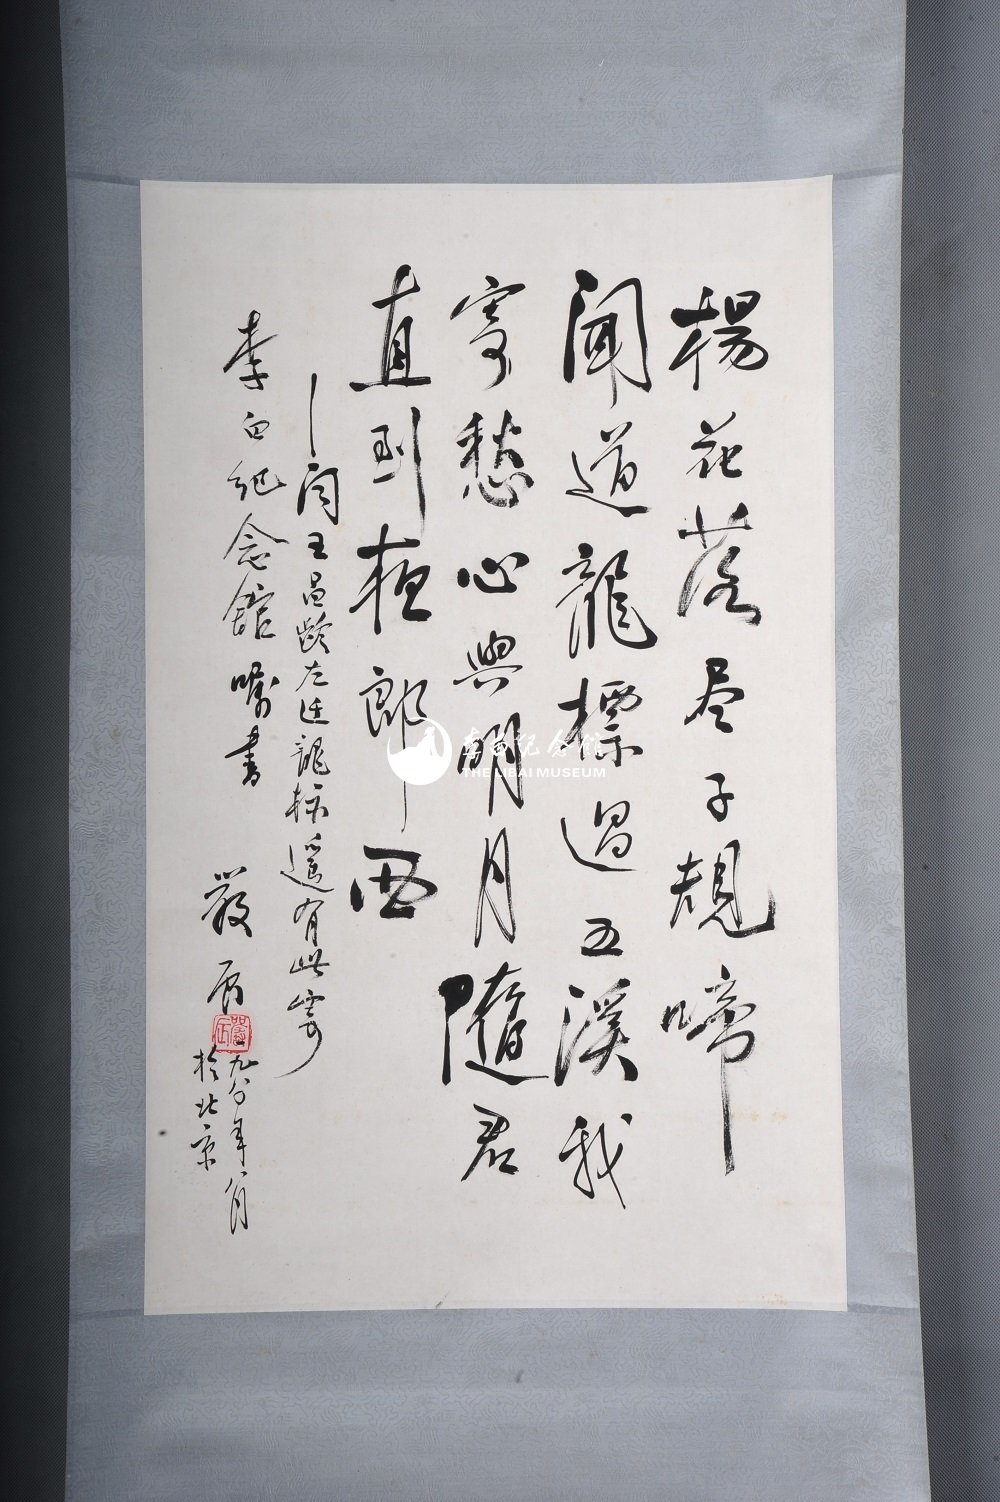 楊花落尽子規啼
聞道龍標過五溪我
寄愁心與明月隨君
直到夜郎西
—闻王昌齡左迁龍标遥有此寄
李白纪念館嘱書
嚴辰
一九八〇年八月
於北京
李白纪念馆
THE LIBAI MUSEUM